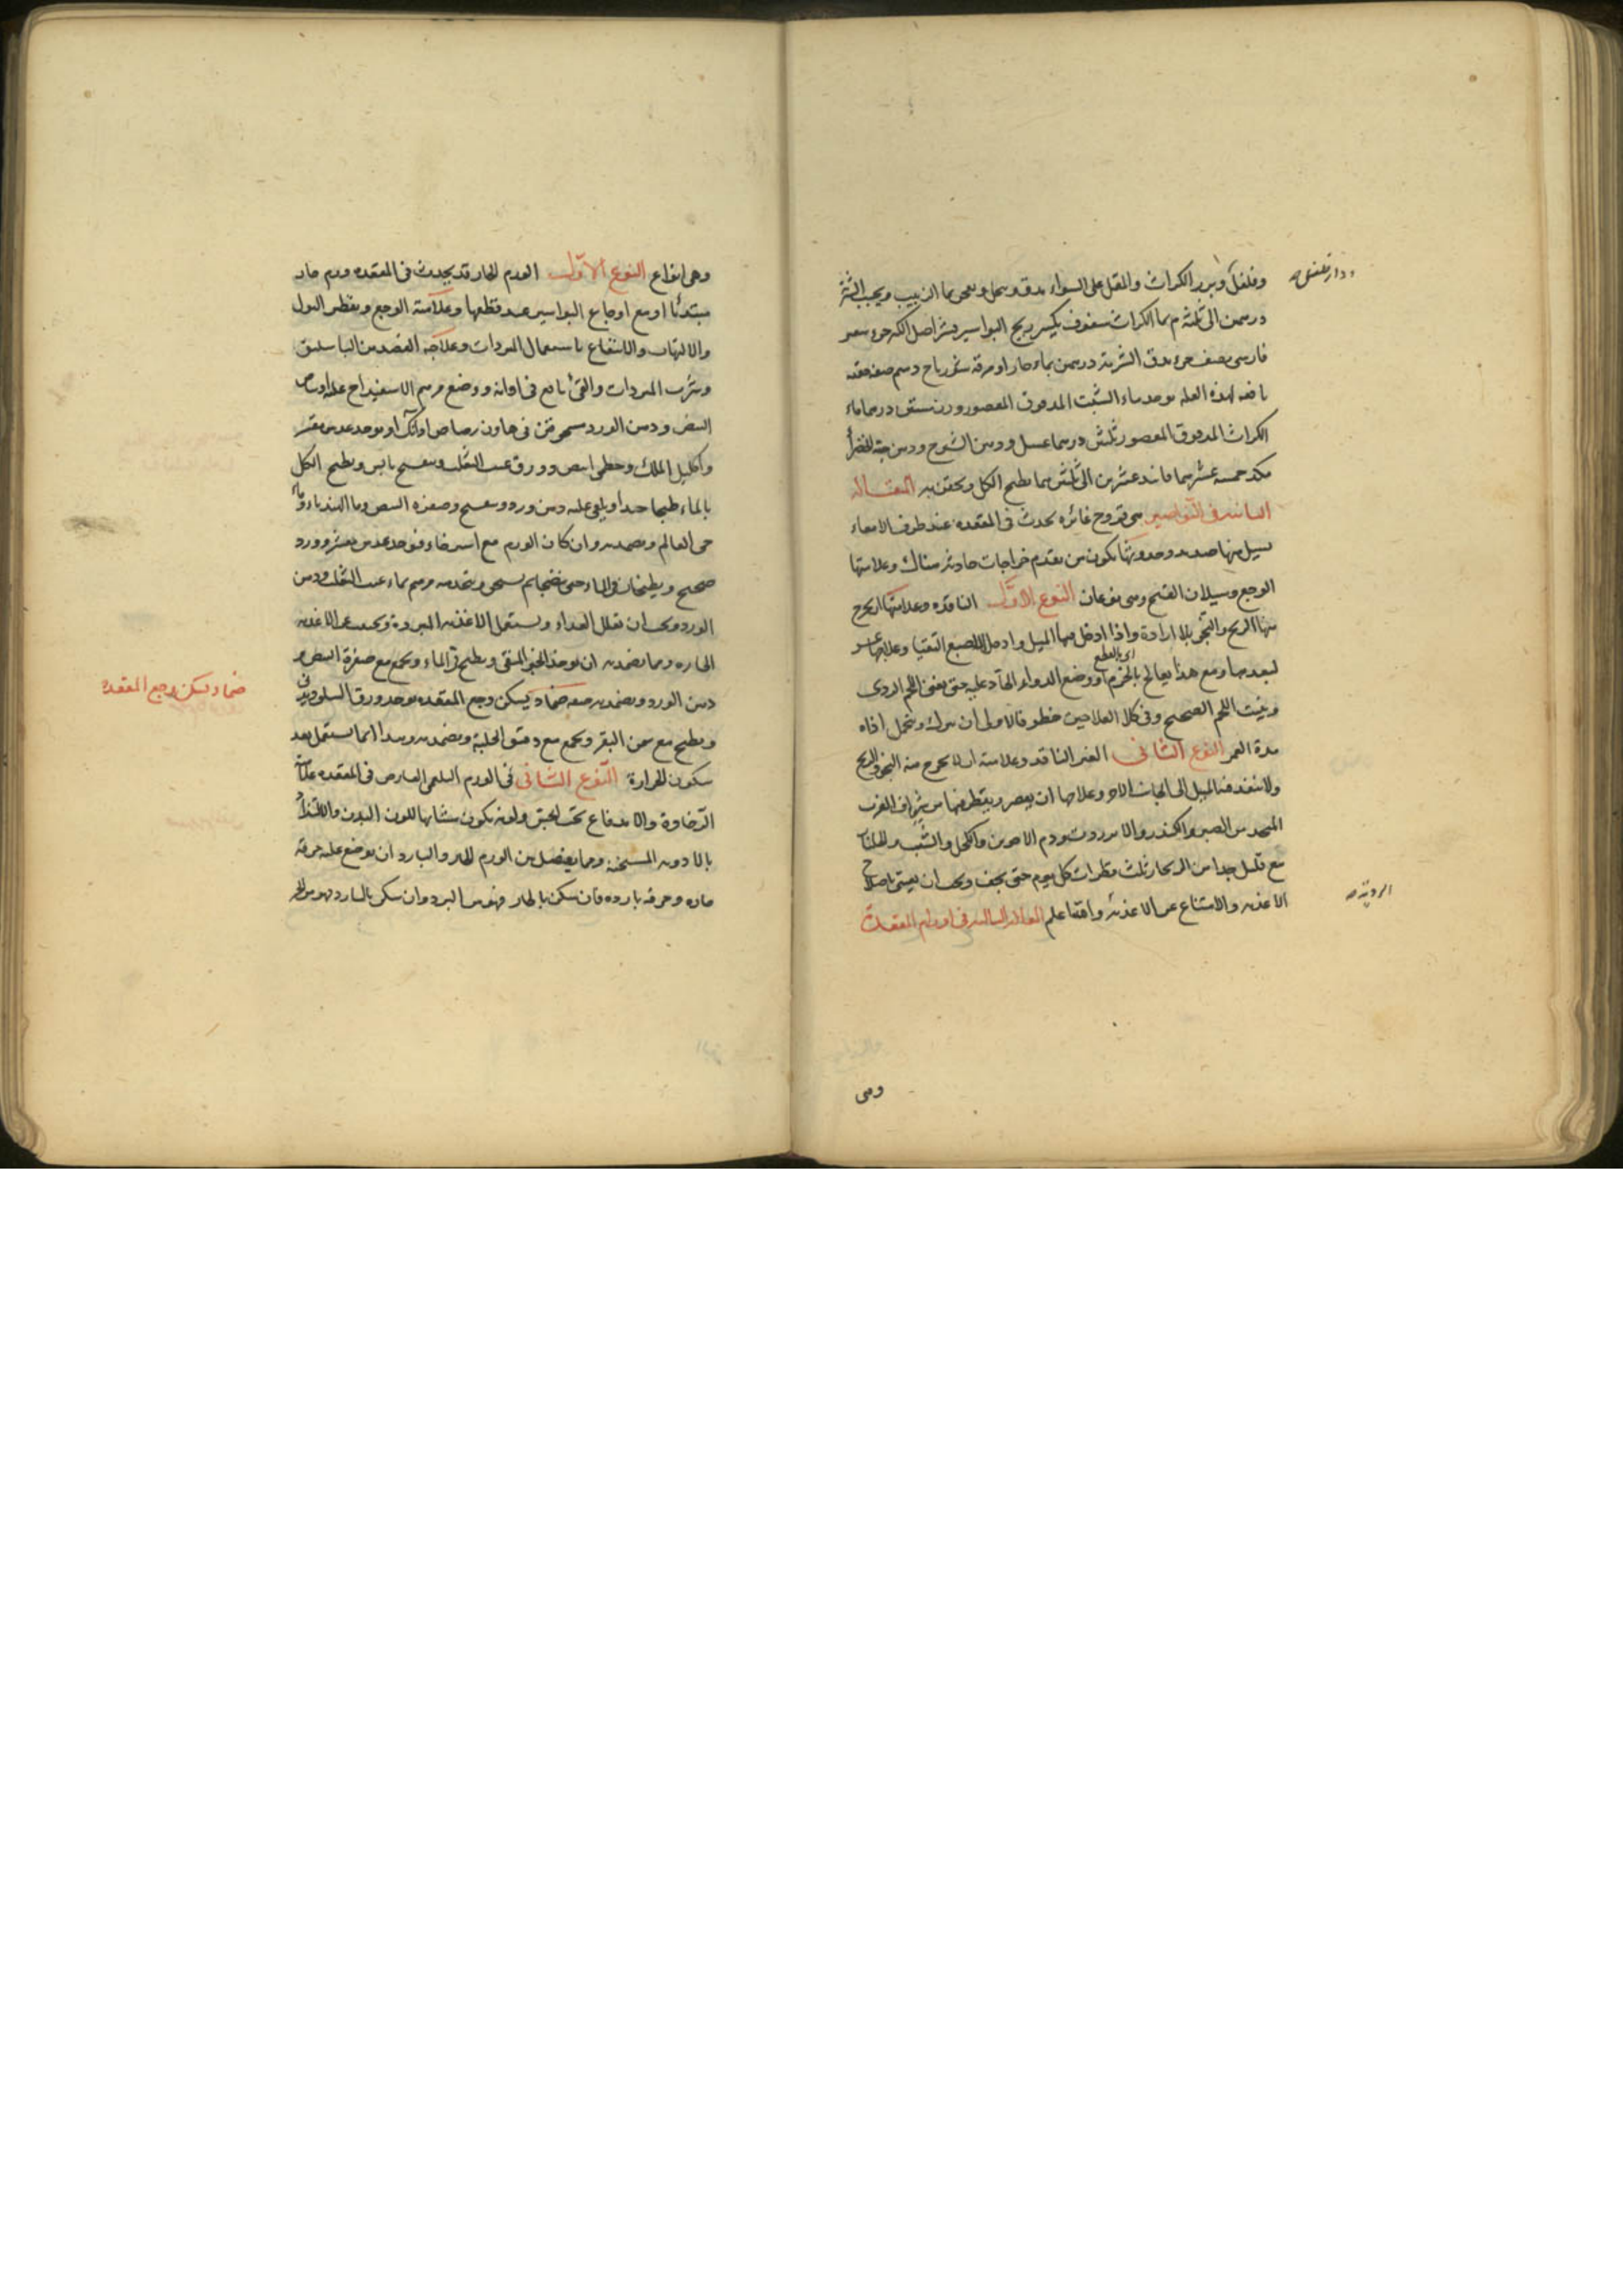 وفلفل وبزر الكراث والمقل على السواء يدق وينخل ويعجن بماء الزبيب ويحبب الشربة
ودار فلفل صح
درهمين الى ثلثة م بماء الكراث سفوف يكسر ريح البواسير قشر اصل الكبر جزء سعتر
فارسى نصف جزء يدق الشربة درهمين بماء حار او مرقة صفة حقنة
نافعة لهذه العلة يوخذ ماء الشبت المدقوق المعصور وزن ستين درهما ماء
الكراث المدقوق المعصور ثلثين درهما عسل ودهن ودهن حبة الخضراء
مكد خمسة عشر الى ثلثين يطبخ الكل ويحقن به المقالة
الثانية فى النواصير هى قروح غائرة تحدث فى المقعدة عند طرف الامعاء
يسيل منها صديد وحدوثها يكون من تقدم خراجات حادثة هناك وعلامتها
الوجع وسيلان القيح وهى نوعان النوع الاول النافذة وعلامتها ان يخرج
منها الريح والنجو بلا ارادة واذا ادخل فيها الميل وادخل الاصبع التقيا وعلاجها عسر
اى بالقطع
لبعدها ومع هذا يعالج بالخزم او وضع الدواء الحاد عليه حتى يفنى اللحم الردى
وينبت اللحم الصحيح وفى كلا العلاجين خطر فالاولى ان يترك ويتحمل اذاه
مدة العمر النوع الثانى الغير النافذ وعلامته ان لا يخرج منه النجو والريح
ولا ينفذ فيه الميل الى الجانب الاخر وعلاجها ان يعصر ويقطر فيها من شياف الغرب
المتخذ من الصبر والكندر والانزروت ودم الاخوين والكحل والشب والجلنار
مع قليل جدا من الزنجار ثلث قطرات كل يوم حتى يجف ويجب ان يعتنى باصلاح
الاغذية والامتناع عن الاغذية واعلم المقالة الثالثة فى اورام المقعدة
الردية صح
وهى
وهى انواع النوع الاول الورم الحار قد يحدث فى المقعدة ورم حار
مبتدئا او مع اوجاع البواسير عند قطعها وعلامته الوجع وتقطير البول
والالتهاب والانتفاع باستعمال المبردات وعلاجه الفصد من الباسليق
وشرب المبردات والقئ نافع فى اوانه ووضع مرهم الاسفيداج عليه او بياض
البيض ودهن الورد يسحق فى هاون رصاص او آنك او يوخذ عدس مقشر
واكليل الملك وخطمى ابيض وورق عنب الثعلب وبنفسج يابس ويطبخ الكل
بالماء طبخا جيدا ويلقى عليه دهن ورد وبنفسج وصفرة البيض وماء الهندباء وماء
حى العالم ويضمد به وان كان الورم مع استرخاء فيوخذ عدس مقشر وورد
صحيح ويطبخان بالماء حتى ينضجا ثم يسحق ويتخذ منه مرهم بماء عنب الثعلب ودهن
الورد ويجب ان يقلل الغذاء ويستعمل الاغذية المبردة ويجتنب عن الاغذية
الحارة ومما يضمد به ان يوخذ الخبز المنقى ويطبخ فى الماء ويجمع مع صفرة البيض و
دهن الورد ويضمد به صفة ضماد يسكن وجع المقعدة يوخذ ورق
ضماد يسكن وجع المقعدة
ويطبخ مع سمن البقر ويجمع مع دقيق الحلبة ويضمد به وهذا انما يستعمل بعد
سكون الحرارة النوع الثانى فى الورم البلغمى العارض فى المقعدة علامته
الرخاوة والاندفاع تحت الجس ولونه يكون مشابها للون البدن والالتذاذ
بالادوية المسخنة ومما يفصل بين الورم الحار والبارد ان يوضع عليه خرقة
حارة وخرقة باردة فان سكن بالحار فهو من البرد وان سكن بالبارد فهو من الحر